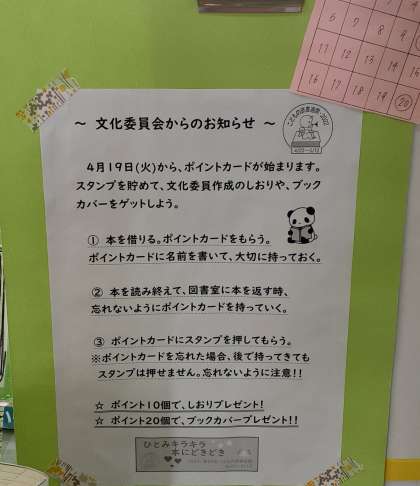 ～ 文化委員会からのお知らせ ～
こどもの読書週間 2022
4/23〜5/12
4月19日(火)から、ポイントカードが始まります。
スタンプを貯めて、文化委員作成のしおりや、ブック
カバーをゲットしよう。
① 本を借りる。ポイントカードをもらう。
ポイントカードに名前を書いて、大切に持っておく。
② 本を読み終えて、図書室に本を返す時、
忘れないようにポイントカードを持っていく。
③ ポイントカードにスタンプを押してもらう。
※ポイントカードを忘れた場合、後で持ってきても
スタンプは押せません。忘れないように注意!!
☆ ポイント10個で、しおりプレゼント!
☆ ポイント20個で、ブックカバープレゼント!!
ひとみキラキラ
本にどきどき
5 6 7 8 9
11 12 13 14
16 17 18 19 20